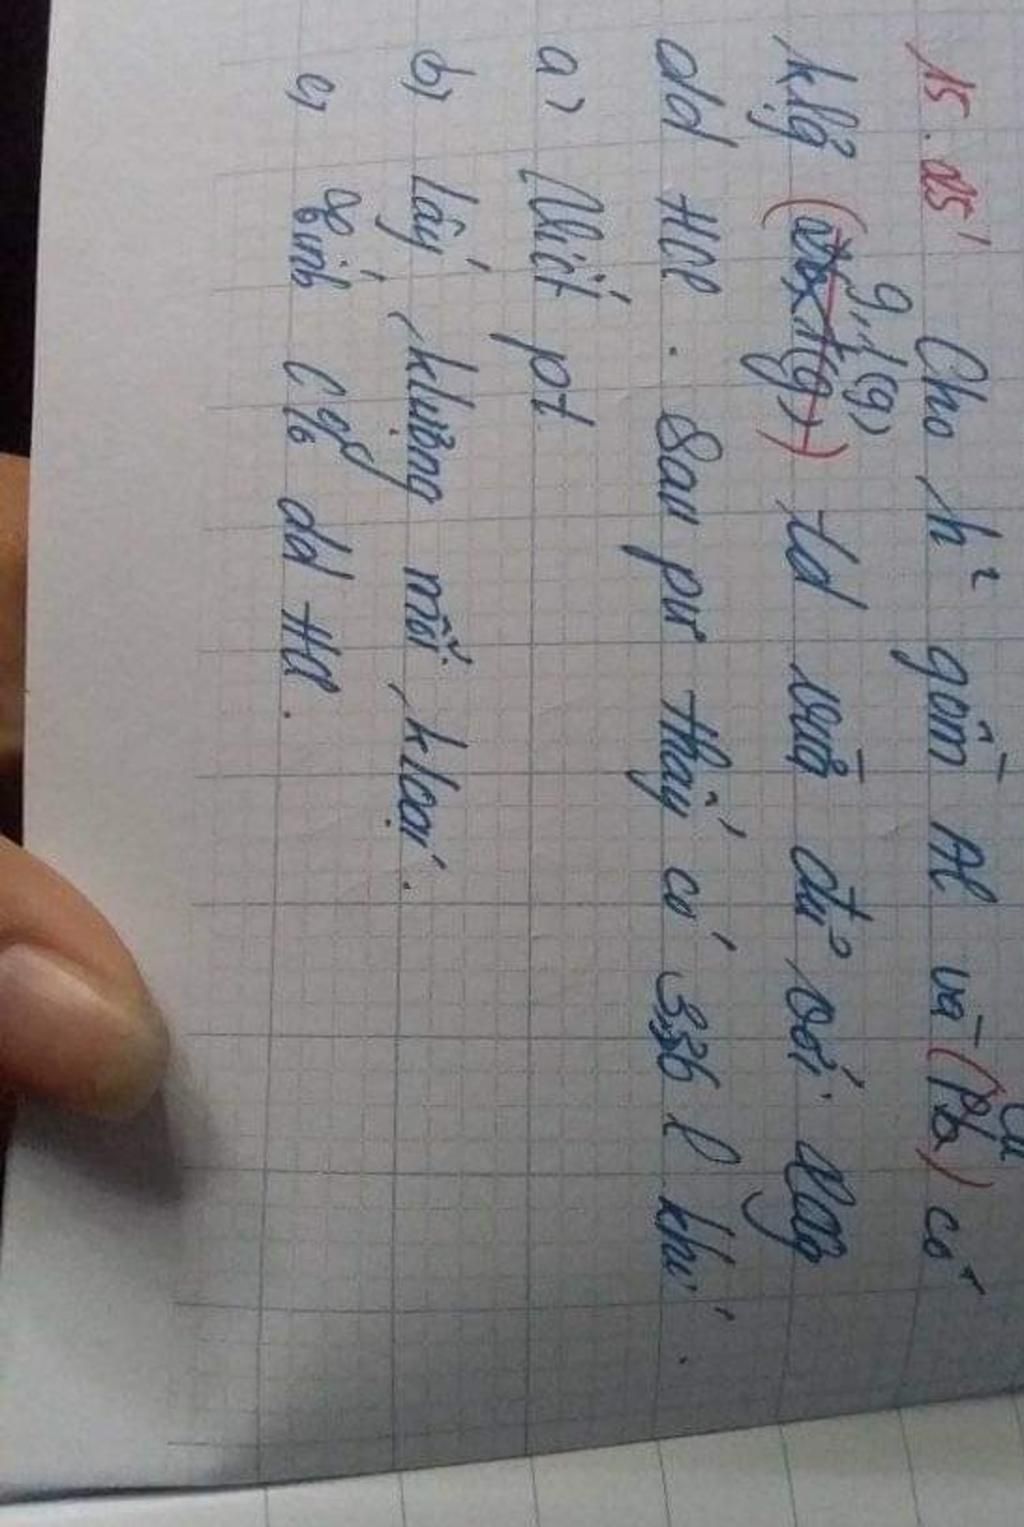 15. đs' Cho h² gồm Al và (Pb) Cu có
klg 9,1(g) td vừa đủ với
dd HCl. Sau pư thấy có 3,36 l khí.
a) Viết pt
b) lấy klượng mỗi kloại.
c) Tính C% dd HCl.